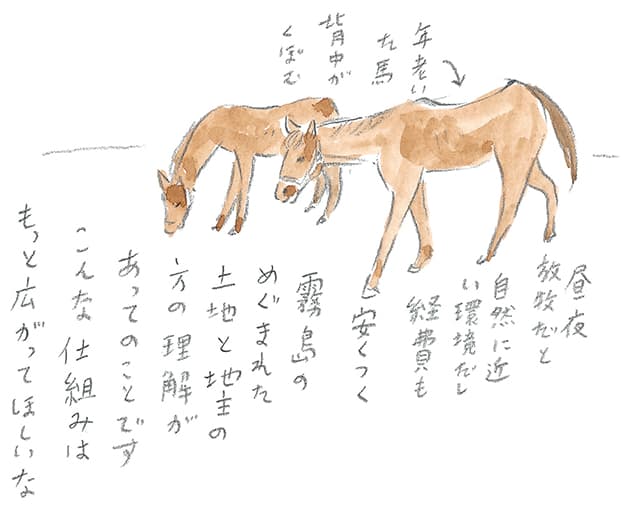 年老い
た馬
背中が
くぼむ
昼夜
放牧だと
自然に近
い環境だし
経費も
安くつく
霧島の
めぐまれた
土地と地主の
方の理解が
あってのことです
こんな仕組みは
もっと広がってほしいな